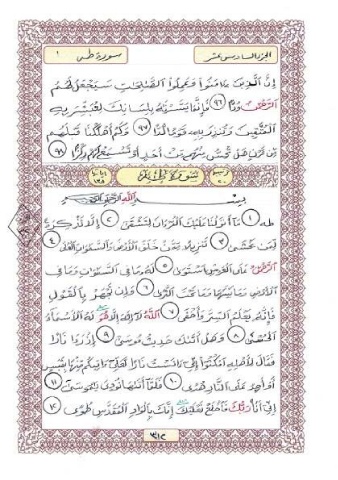 الجزء السادس عشر سورة طه ١
إِنَّ الَّذِينَ ءَامَنُوا۟ وَعَمِلُوا۟ الصَّٰلِحَٰتِ سَيَجْعَلُ لَهُمُ
الرَّحْمَٰنُ وُدًّا ٩٦ فَإِنَّمَا يَسَّرْنَٰهُ بِلِسَانِكَ لِتُبَشِّرَ بِهِ
الْمُتَّقِينَ وَتُنذِرَ بِهِ قَوْمًا لُّدًّا ٩٧ وَكَمْ أَهْلَكْنَا قَبْلَهُم
مِّن قَرْنٍ هَلْ تُحِسُّ مِنْهُم مِّنْ أَحَدٍ أَوْ تَسْمَعُ لَهُمْ رِكْزًا ٩٨
سُورَةُ طه
بِسْمِ اللَّهِ الرَّحْمَٰنِ الرَّحِيمِ
طه ١ مَا أَنزَلْنَا عَلَيْكَ الْقُرْءَانَ لِتَشْقَىٰ ٢ إِلَّا تَذْكِرَةً
لِّمَن يَخْشَىٰ ٣ تَنزِيلًا مِّمَّنْ خَلَقَ الْأَرْضَ وَالسَّمَٰوَٰتِ الْعُلَى ٤
الرَّحْمَٰنُ عَلَى الْعَرْشِ اسْتَوَىٰ ٥ لَهُ مَا فِي السَّمَٰوَٰتِ وَمَا فِي
الْأَرْضِ وَمَا بَيْنَهُمَا وَمَا تَحْتَ الثَّرَىٰ ٦ وَإِن تَجْهَرْ بِالْقَوْلِ
فَإِنَّهُ يَعْلَمُ السِّرَّ وَأَخْفَى ٧ اللَّهُ لَا إِلَٰهَ إِلَّا هُوَ لَهُ الْأَسْمَاءُ
الْحُسْنَىٰ ٨ وَهَلْ أَتَىٰكَ حَدِيثُ مُوسَىٰ ٩ إِذْ رَءَا نَارًا
فَقَالَ لِأَهْلِهِ امْكُثُوا۟ إِنِّي ءَانَسْتُ نَارًا لَّعَلِّي ءَاتِيكُم مِّنْهَا بِقَبَسٍ
أَوْ أَجِدُ عَلَى النَّارِ هُدًى ١٠ فَلَمَّا أَتَىٰهَا نُودِيَ يَٰمُوسَىٰ ١١
إِنِّي أَنَا۠ رَبُّكَ فَاخْلَعْ نَعْلَيْكَ إِنَّكَ بِالْوَادِ الْمُقَدَّسِ طُوًى ١٢
٣١٢